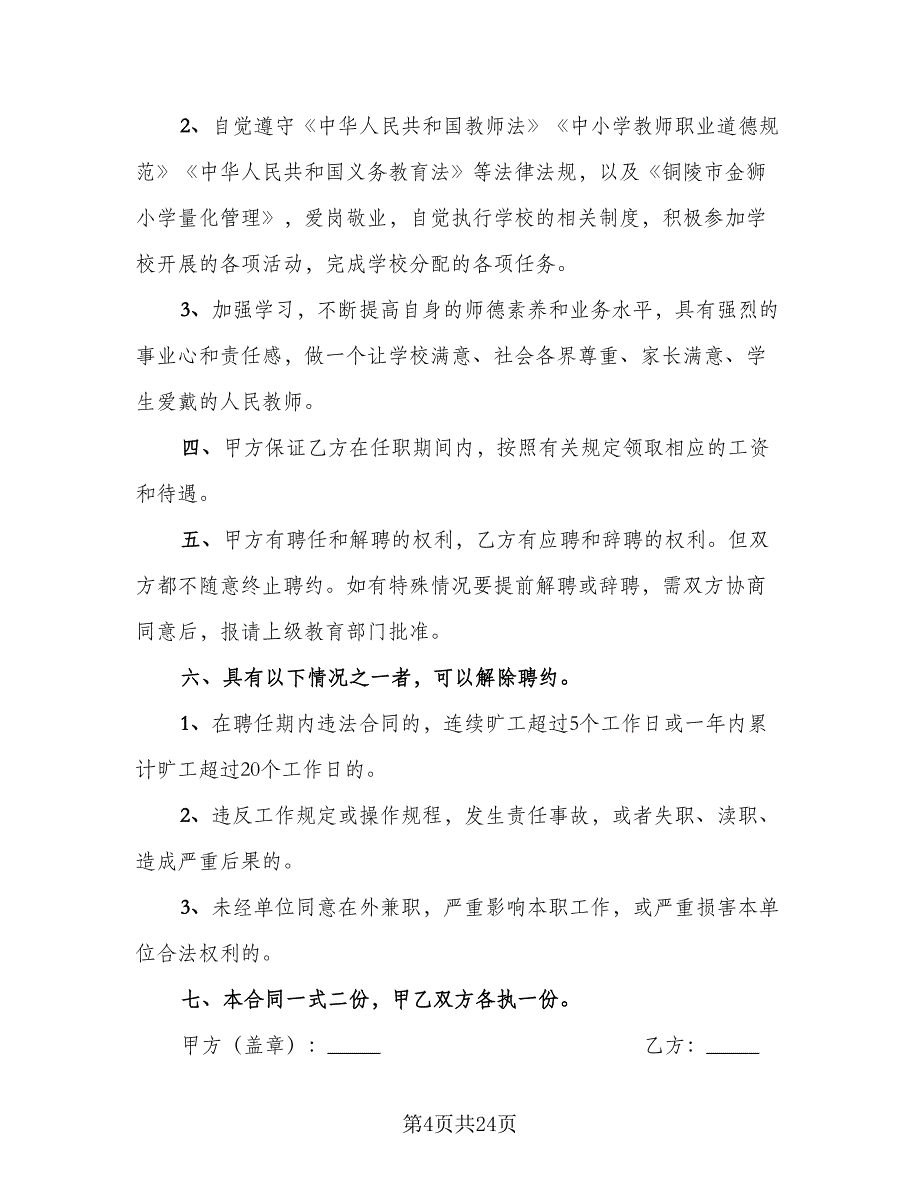 2、自觉遵守《中华人民共和国教师法》《中小学教师职业道德规
范》《中华人民共和国义务教育法》等法律法规，以及《铜陵市金狮
小学量化管理》，爱岗敬业，自觉执行学校的相关制度，积极参加学
校开展的各项活动，完成学校分配的各项任务。
3、加强学习，不断提高自身的师德素养和业务水平，具有强烈的
事业心和责任感，做一个让学校满意、社会各界尊重、家长满意、学
生爱戴的人民教师。
四、甲方保证乙方在任职期间内，按照有关规定领取相应的工资
和待遇。
五、甲方有聘任和解聘的权利，乙方有应聘和辞聘的权利。但双
方都不随意终止聘约。如有特殊情况要提前解聘或辞聘，需双方协商
同意后，报请上级教育部门批准。
六、具有以下情况之一者，可以解除聘约。
1、在聘任期内违法合同的，连续旷工超过5个工作日或一年内累
计旷工超过20个工作日的。
2、违反工作规定或操作规程，发生责任事故，或者失职、渎职、
造成严重后果的。
3、未经单位同意在外兼职，严重影响本职工作，或严重损害本单
位合法权利的。
七、本合同一式二份，甲乙双方各执一份。
甲方（盖章）：_____ 乙方：_____
第4页共24页